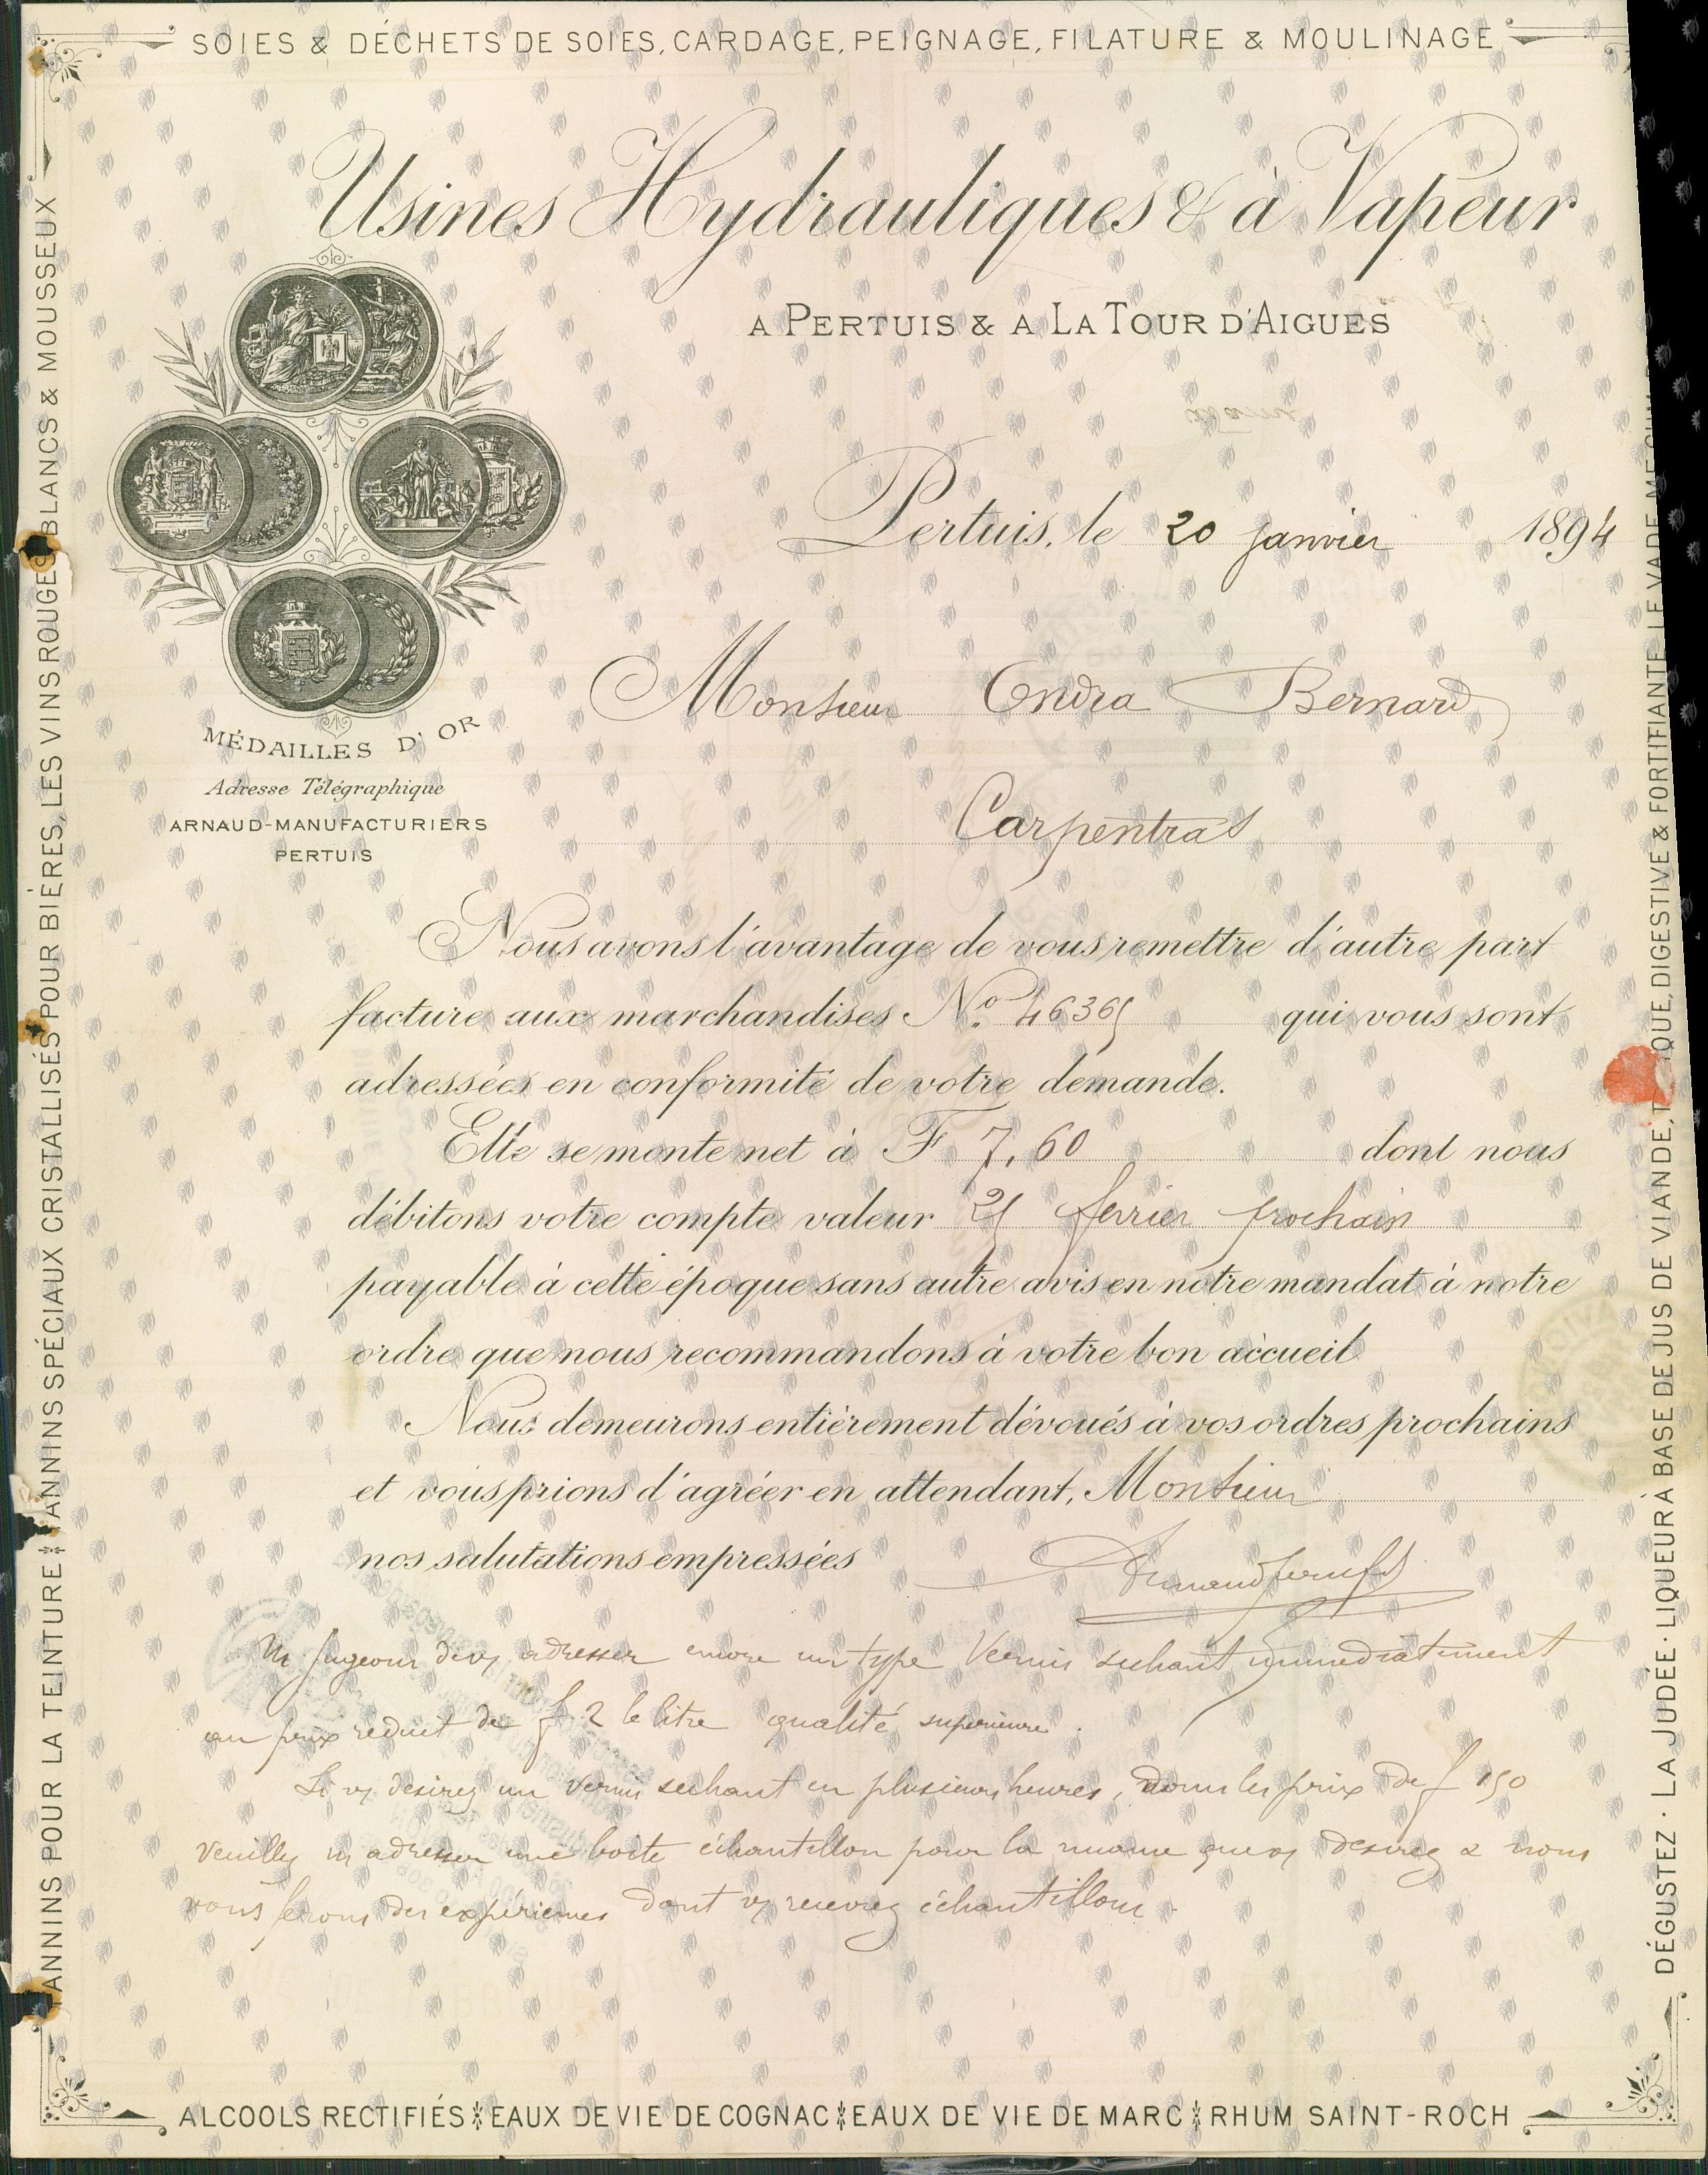 SOIES & DÉCHETS DE SOIES, CARDAGE, PEIGNAGE, FILATURE & MOULINAGE
Usines Hydrauliques & à Vapeur
A PERTUIS & A LA TOUR D'AIGUES
Pertuis, le 20 janvier 1894
Monsieur Endra Bernard
Carpentras
MÉDAILLES D'OR
Adresse Télégraphique
ARNAUD-MANUFACTURIERS
PERTUIS
Nous avons l'avantage de vous remettre d'autre part
facture aux marchandises No. 46365 qui vous sont
adressées en conformité de votre demande.
Elle se monte net à F. 7,60 dont nous
débitons votre compte valeur 25 fevrier prochain
payable à cette époque sans autre avis en notre mandat à notre
ordre que nous recommandons à votre bon accueil
Nous demeurons entièrement dévoués à vos ordres prochains
et vous prions d'agréer en attendant, Monsieur
nos salutations empressées
adresser encore un type Vernis sechant immediatement
au prix reduit de f 2 le litre qualité superieure.
Si vs desirez un vernis sechant en plusieurs heures, dans les prix de f 150
veuillez ns adresser une boite échantillon pour la nuance que vs desirez & nous
vous ferons des experiences dont vs recevrez échantillons.
TANNINS POUR LA TEINTURE TANNINS SPÉCIAUX CRISTALLISÉS POUR BIÈRES, LES VINS ROUGES BLANCS & MOUSSEUX
DÉGUSTEZ · LA JUDÉE · LIQUEUR À BASE DE JUS DE VIANDE, DIGESTIVE & FORTIFIANTE LE VADE
ALCOOLS RECTIFIÉS EAUX DE VIE DE COGNAC EAUX DE VIE DE MARC RHUM SAINT-ROCH